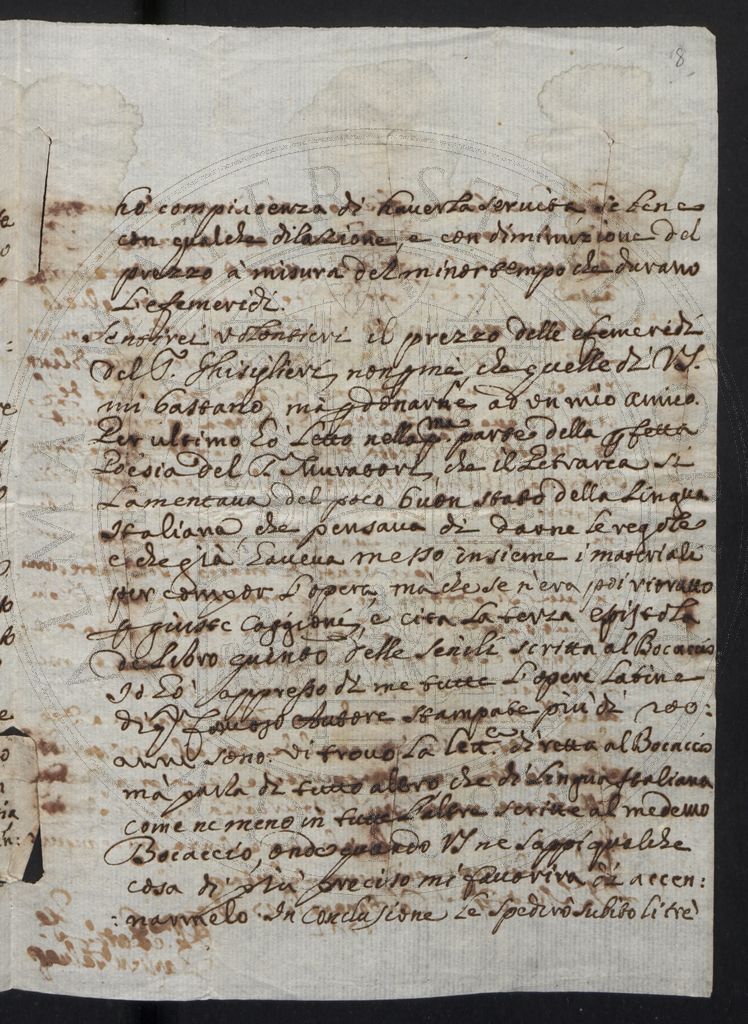 8
hò compiacenza di haverla servita se bene
con qualche dilazione, e con diminuzione del
prezzo à misura del minor tempo che durano
L'efemeridi.
Sentirei volontieri il prezzo delle efemeridi
del P. Ghisiglieri, non p me che quelle di VS.
mi bastano, mà p donarne ad un mio amico.
Per ultimo hò letto nella p.ma parte della pfetta
Poesia del S. Muratori, che il Petrarca si
Lamentava del poco buon stato della Lingua
Italiana, che pensava di darne le regole
e che già haveva messo insieme i materiali
per compor l'opera, mà che se n'era poi ritirato
p giuste caggioni, e cita la terza epistola
de Libro quinto delle Senili scritta al Bocaccio
Io hò appresso di me tutte l'opere Latine
di q.to famoso Autore stampate più di 200:
anni sono. Vi trovo la lett.a diretta al Bocaccio
mà parla di tutto altro che di Lingua Italiana
come ne meno in tutte l'altre scritte al medemo
Bocaccio, onde quando VS ne sappi qualche
cosa di più preciso mi favorirà di accen:
:narmelo. In conclusione le spedirò subito li tre